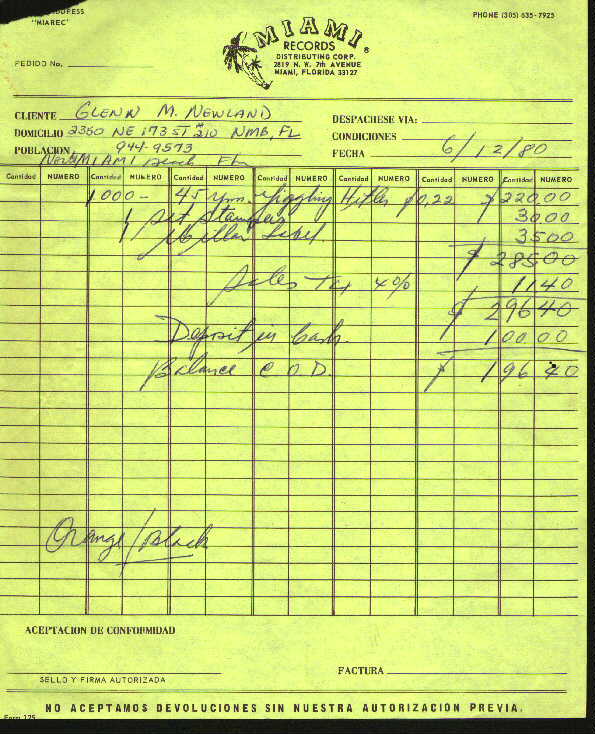 DDRESS
"MIAREC"
PHONE (305) 635-7925
MIAMI
RECORDS ®
DISTRIBUTING CORP.
2819 N. W. 7th AVENUE
MIAMI, FLORIDA 33127
PEDIDO No.
CLIENTE GLENN M. NEWLAND
DESPACHESE VIA:
DOMICILIO 2350 NE 173 ST #210 NMB, FL
CONDICIONES
POBLACION 944-9573
FECHA 6/12/80
North MIAMI Beach Fla
Cantidad NUMERO Cantidad NUMERO Cantidad NUMERO Cantidad NUMERO Cantidad NUMERO Cantidad NUMERO Cantidad NUMERO
1000- 45 rpm. Giggling Hitler $0.22 $ 220.00
1 Set Stampers 30.00
Label 35 00
$ 285 00
Sales Tax 4% 11 40
$ 296 40
Deposit in Cash. 100.00
Balance C.O.D. $ 196.40
Orange/Black
ACEPTACION DE CONFORMIDAD
SELLO Y FIRMA AUTORIZADA
FACTURA
NO ACEPTAMOS DEVOLUCIONES SIN NUESTRA AUTORIZACION PREVIA.
Form 125